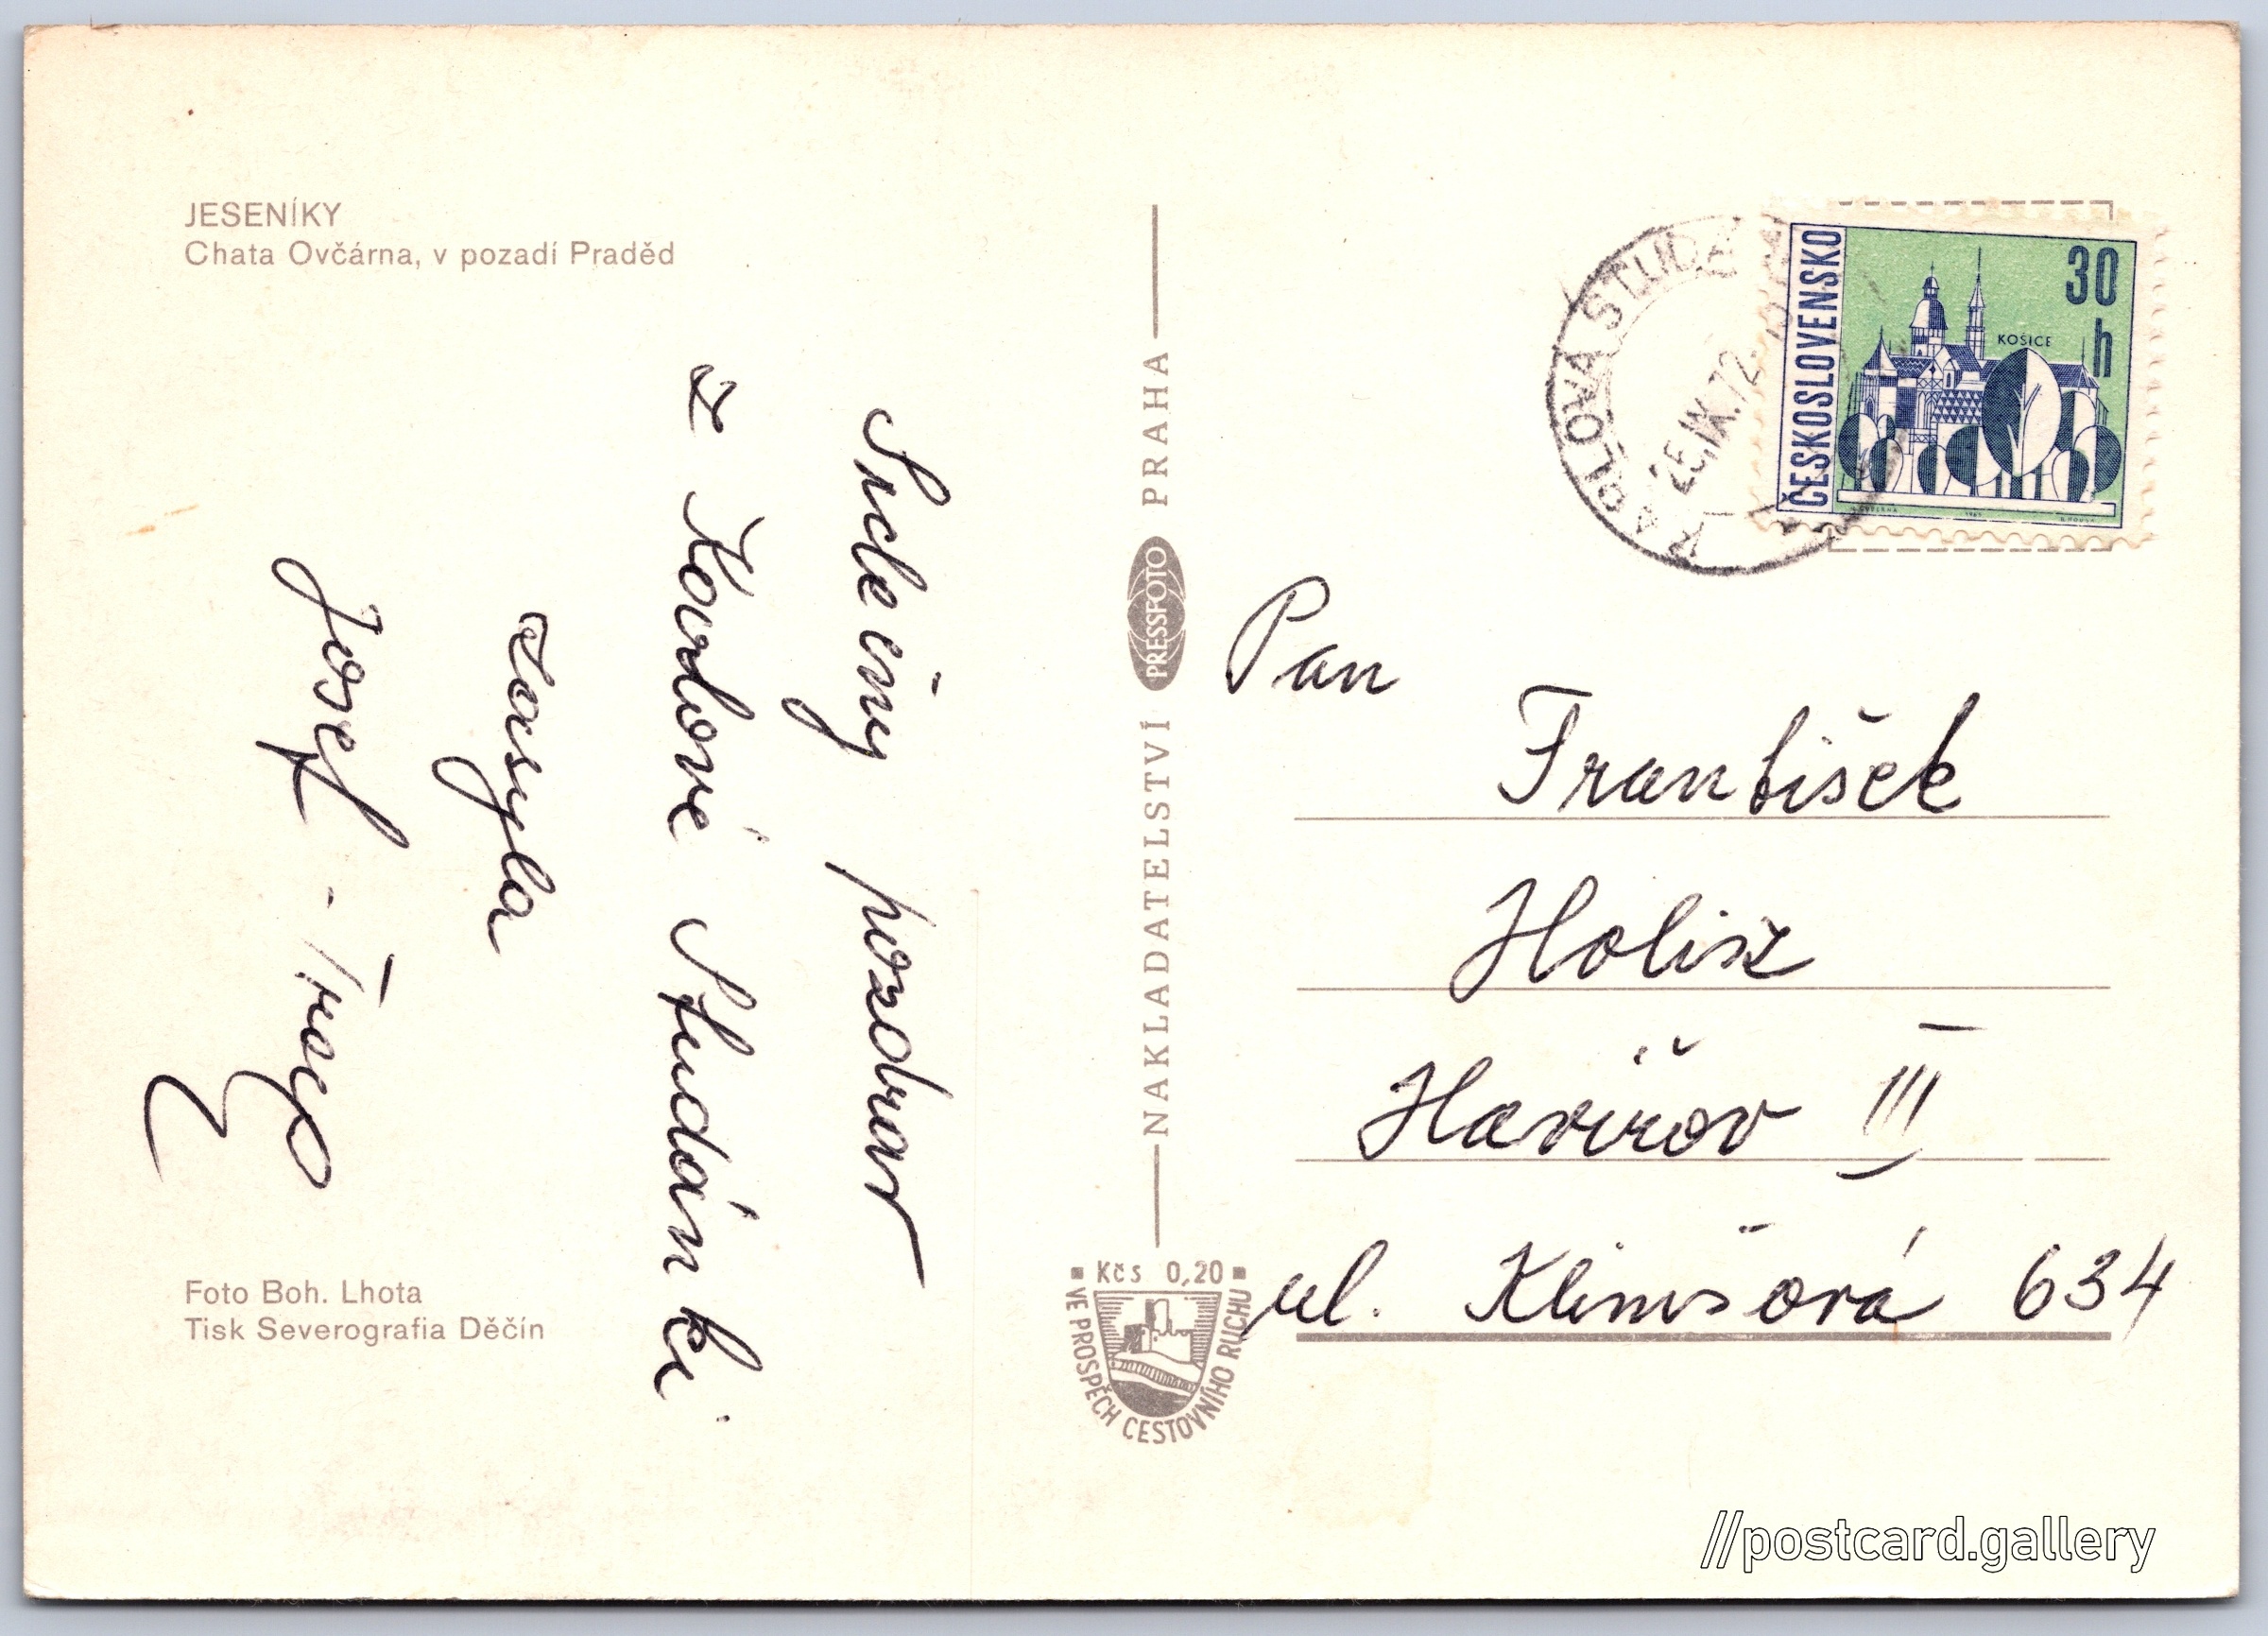 JESENÍKY
Chata Ovčárna, v pozadí Praděd
Srdečný pozdrav
z Karlové Studánki
zasyla
Josef -
Foto Boh. Lhota
Tisk Severografia Děčín
NAKLADATELSTVÍ PRESSFOTO PRAHA
Kčs 0,20
VE PROSPĚCH CESTOVNÍHO RUCHU
KARLOVA STUD
25.IX.72
ČESKOSLOVENSKO
30
h
KOŠICE
Pan
František
Holisz
Havířov III
ul. Klimšová 634
//postcard.gallery